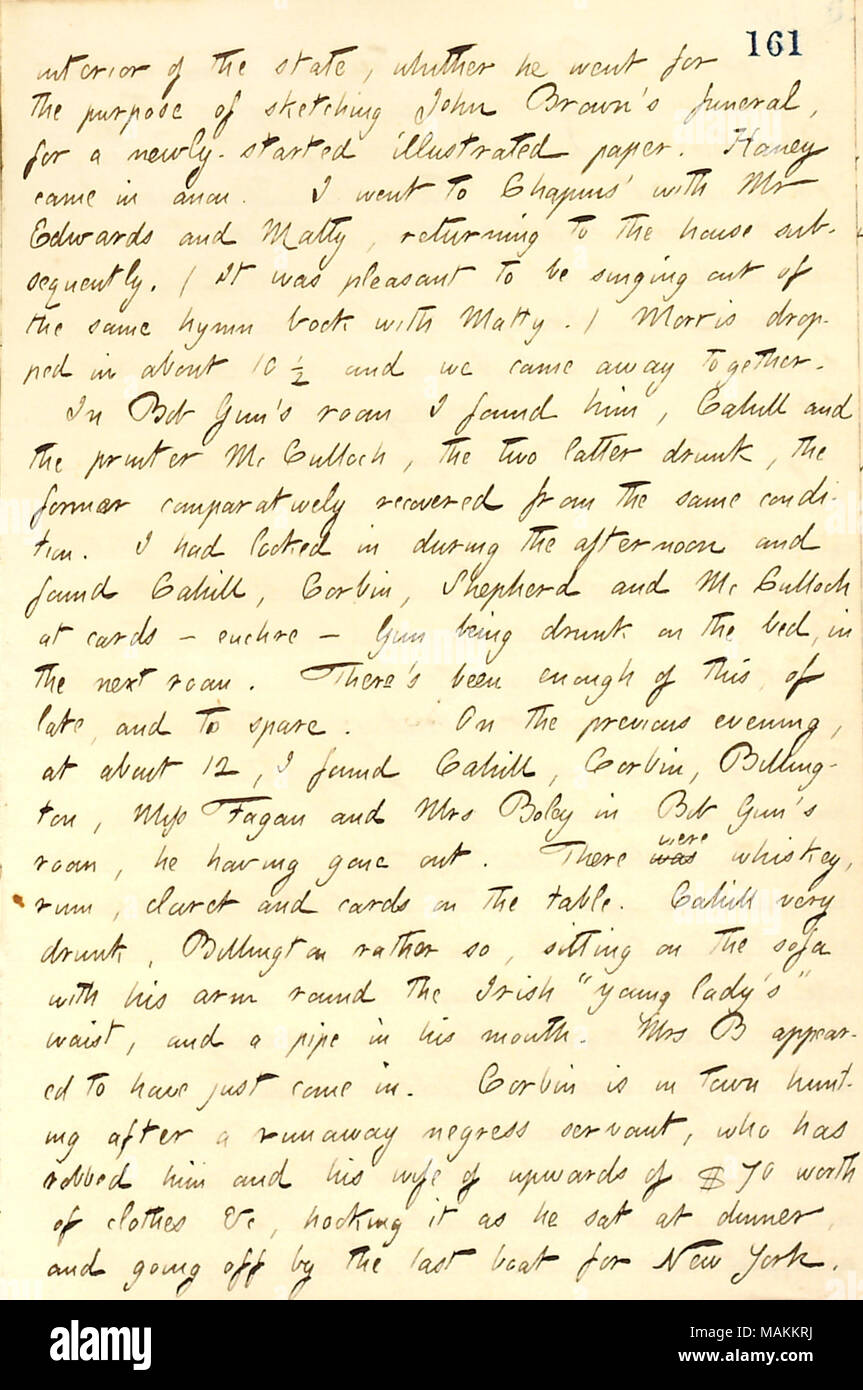 161
interior of the state, whither he went for
the purpose of sketching John Brown's funeral,
for a newly-started illustrated paper. Haney
came in anon. I went to Chapins' with Mr
Edwards and Matty, returning to the house sub-
sequently. (It was pleasant to be singing out of
the same hymn book with Matty.) Morris drop-
ped in about 10 ½ and we came away together.
In Bob Gun's room I found him, Cahill and
the printer McCulloch, the two latter drunk, the
former comparatively recovered from the same condi-
tion. I had looked in during the afternoon and
found Cahill, Corbin, Shepherd and McCulloch
at cards — euchre — Gun being drunk on the bed, in
the next room. There's been enough of this, of
late, and to spare. On the previous evening,
at about 12, I found Cahill, Corbin, Billing-
ton, Miss Fagan and Mrs Boley in Bob Gun's
room, he having gone out. There was were whiskey,
rum, claret and cards on the table. Cahill very
drunk, Billington rather so, sitting on the sofa
with his arm round the Irish "young lady's"
waist, and a pipe in his mouth. Mrs B appear-
ed to have just come in. Corbin is in town hunt-
ing after a runaway negress servant, who has
robbed him and his wife of upwards of $70 worth
of clothes &c, hooking it as he sat at dinner,
and going off by the last boat for New York.
alamy
Image ID: MAKKRJ
www.alamy.com